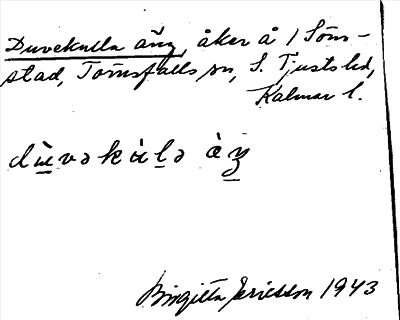 Duvekulla äng, åker å 1 Töm-
stad, Törnsfalls sn, S. Tjusts hd,
Kalmar l.
dù̱vəkùḻə
Birgitta Ericsson 1943